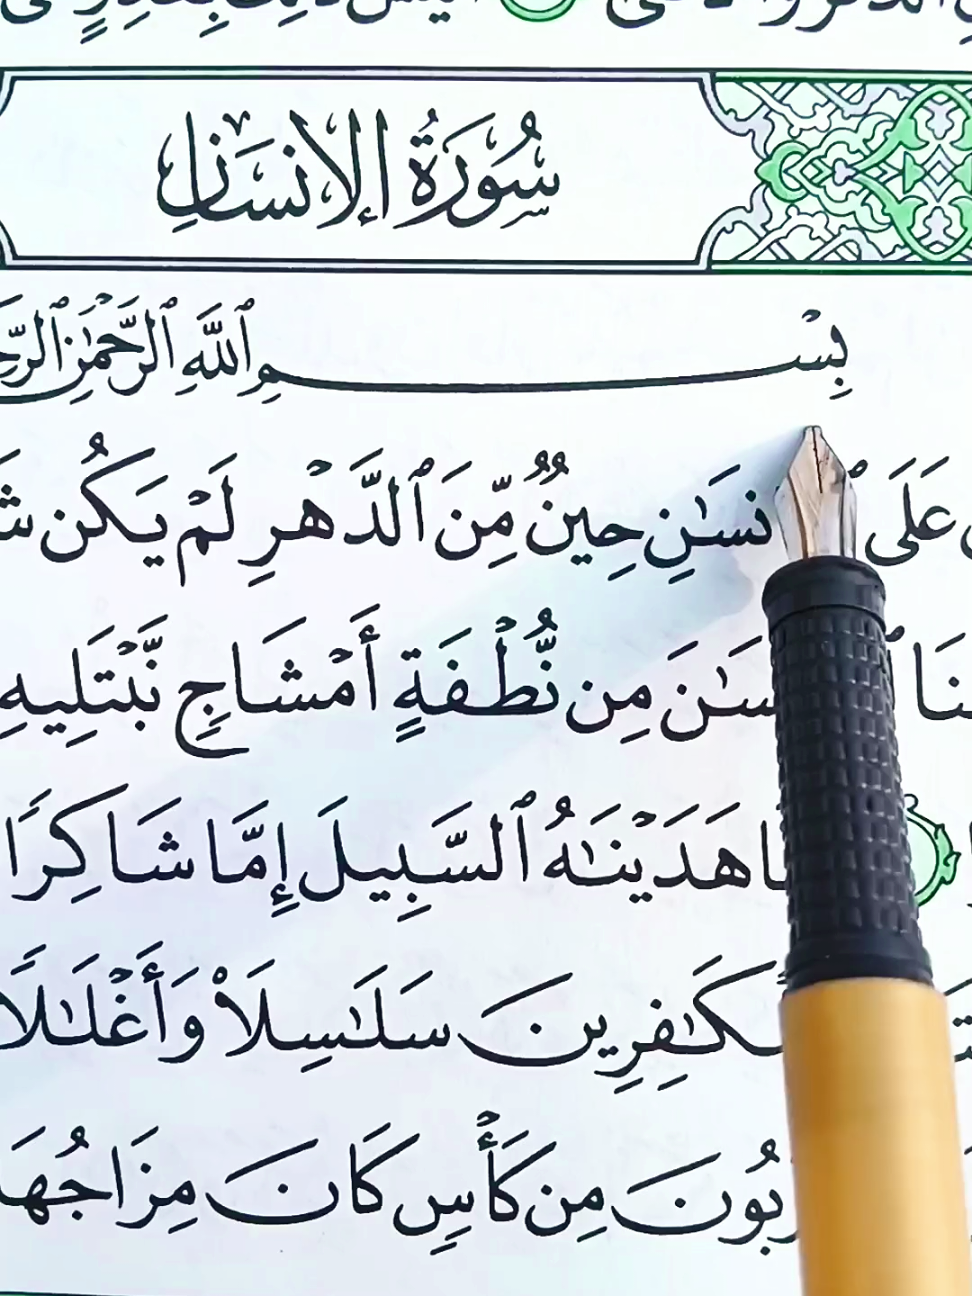 سُورَةُ الإِنسَانِ
بِسْمِ ٱللَّهِ ٱلرَّحْمَٰنِ
عَلَى نسَٰنِ حِينٌ مِّنَ ٱلدَّهْرِ لَمْ يَكُن
مِن نُّطْفَةٍ أَمْشَاجٍ نَّبْتَلِيهِ
هَدَيْنَٰهُ ٱلسَّبِيلَ إِمَّا شَاكِرًا
سَلَٰسِلَا۟ وَأَغْلَٰلًا
مِن كَأْسٍ كَانَ مِزَاجُهَا